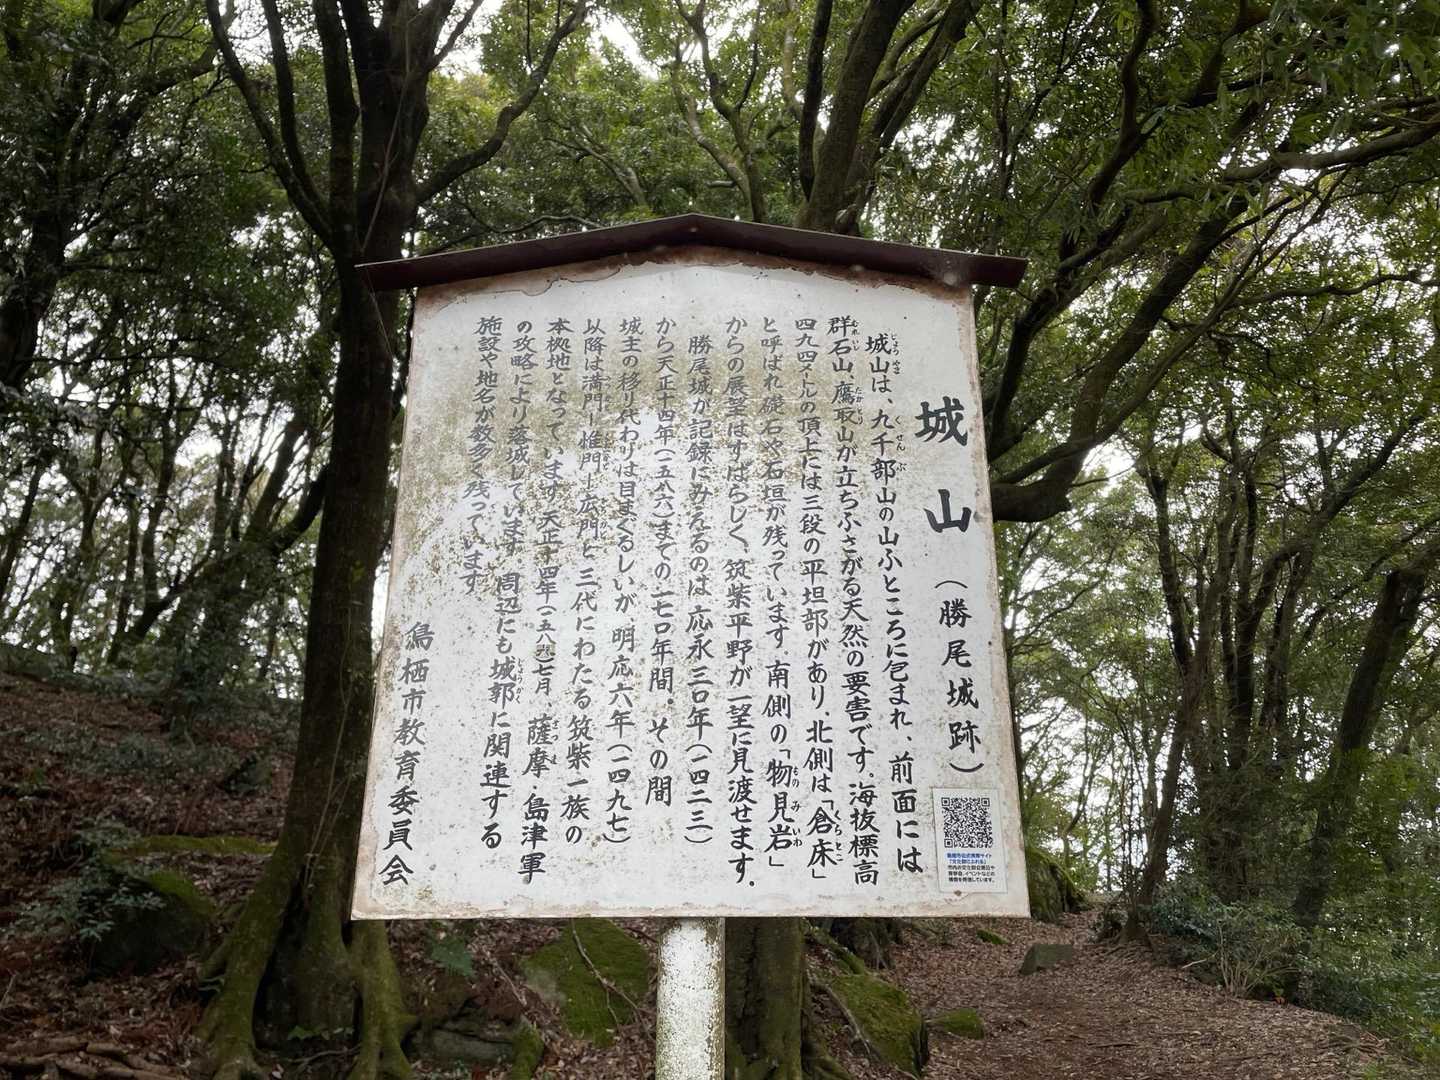 城山（勝尾城跡）
城山は、九千部山の山ふところに包まれ、前面には
群石山、鷹取山が立ちふさがる天然の要害です。海抜標高
四九四メートルの頂上には三段の平坦部があり、北側は「倉床」
と呼ばれ礎石や石垣が残っています。南側の「物見岩」
からの展望はすばらしく、筑紫平野が一望に見渡せます。
勝尾城が記録にみえるのは応永三〇年（一四二三）
から天正十四年（一五八六）までの一七〇年間。その間
城主の移り代わりは目まぐるしいが、明応六年（一四九七）
以降は満門―惟門―広門と三代にわたる筑紫一族の
本拠地となっています。天正十四年（一五八六）七月、薩摩・島津軍
の攻略により落城しています。周辺にも城郭に関連する
施設や地名が数多く残っています。
鳥栖市教育委員会